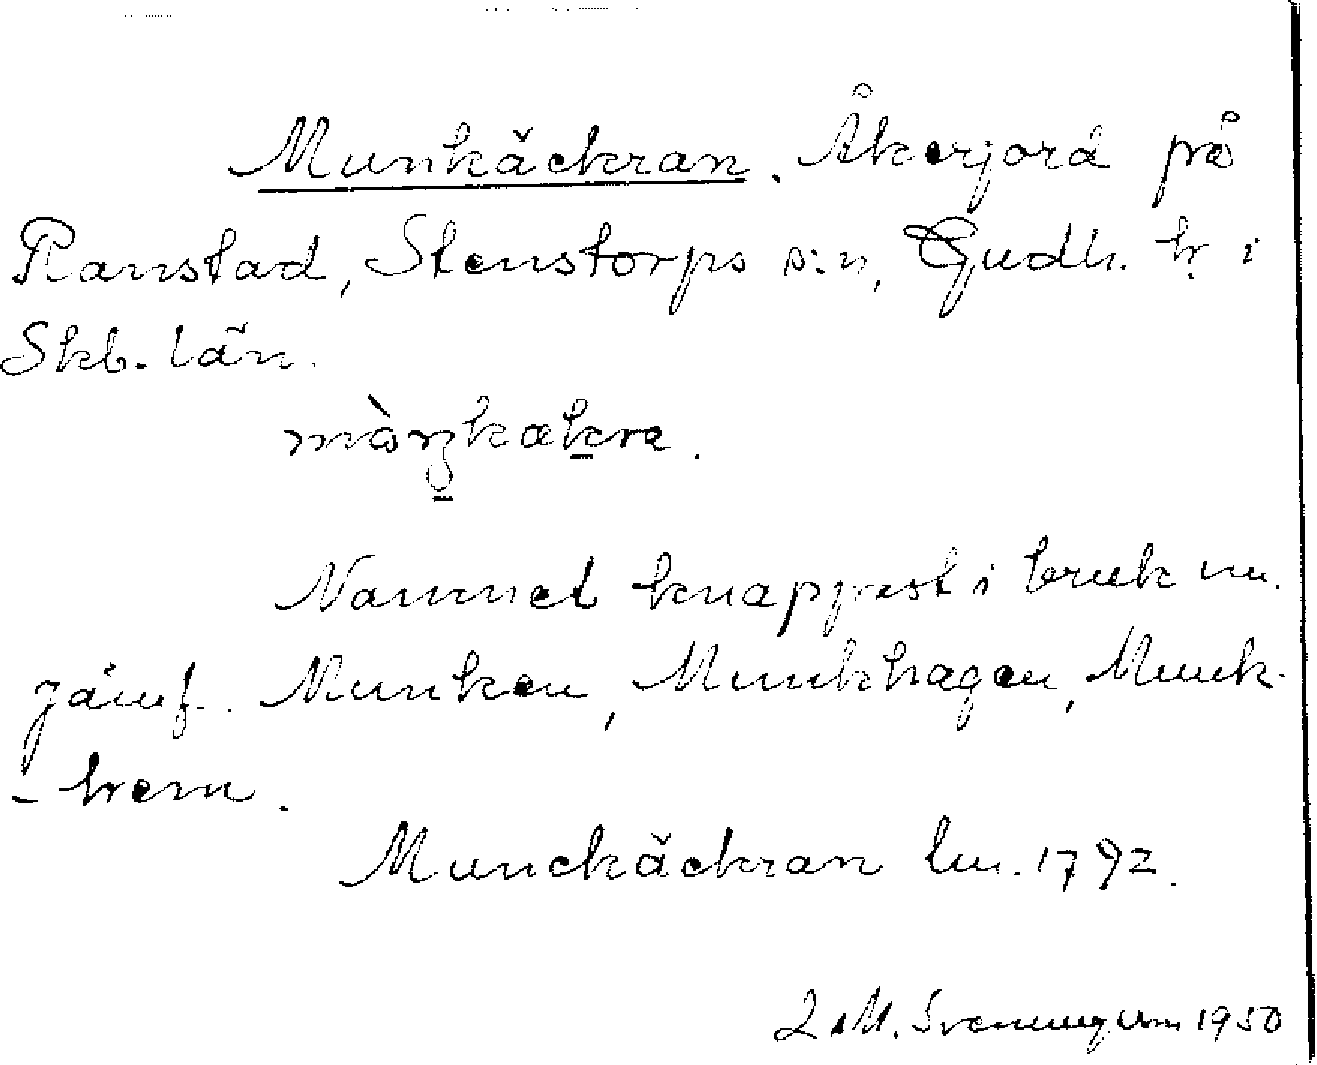 Munkäckran. Åkerjord på
Ranstad, Stenstorps s:n, Gudh. hr i
Skb. län.
màŋkækra.
Namnet knappast i bruk nu.
Jämf. Munken, Munkhagen, Munk-
- hem.
Munckäckran lm. 1792.
M. Sveningson 1950